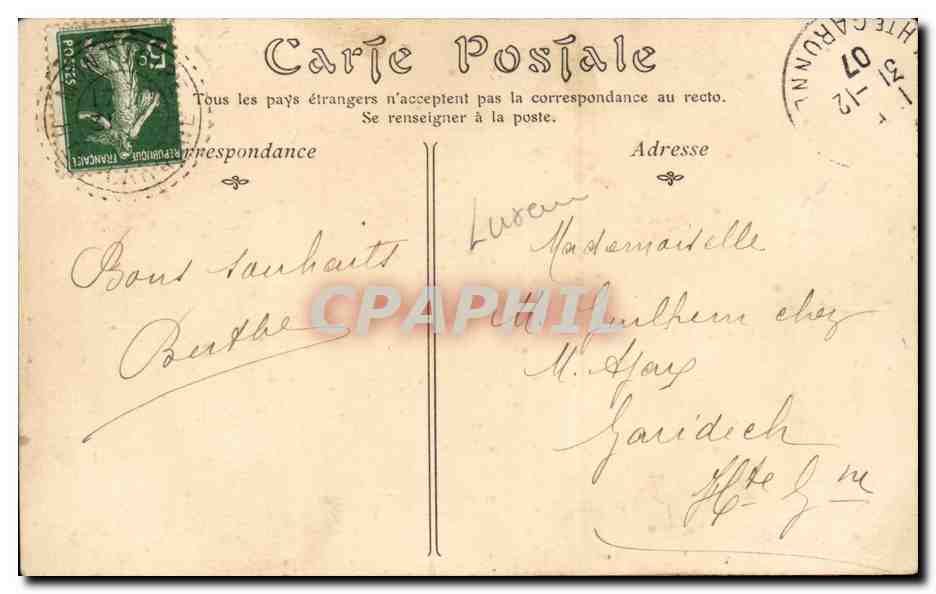 Carte Postale
Tous les pays étrangers n'acceptent pas la correspondance au recto.
Se renseigner à la poste.
Correspondance
Adresse
5c
POSTES
REPUBLIQUE
FRANÇAISE
HTE GARONNE
31 -12
07
Bons souhaits
Berthe
Mademoiselle
M. Guilhem chez
M. Ajax
Garidech
Hte Gne
CPAPHIL